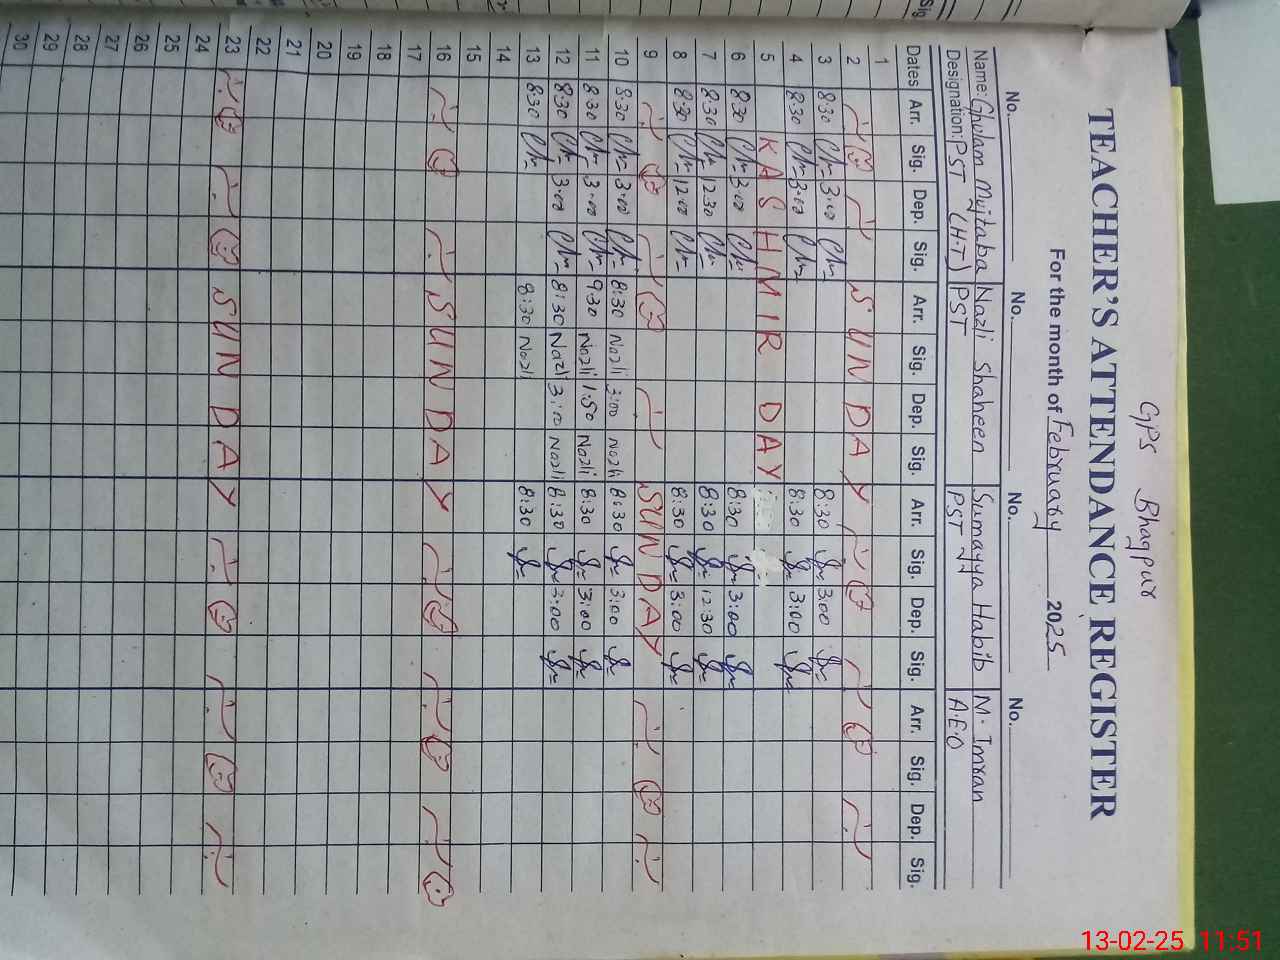 GPS Bhagpur
TEACHER'S ATTENDANCE REGISTER
For the month of February 2025
No. No. No. No.
Name: Ghulam Mujtaba Nazli Shaheen Sumayya Habib M. Imran
Designation: PST (H.T) PST PST A.E.O
Dates Arr. Sig. Dep. Sig. Arr. Sig. Dep. Sig. Arr. Sig. Dep. Sig. Arr. Sig. Dep. Sig.
1
2 SUNDAY
3 8:30 3:00 8:30 3:00
4 8:30 3:00 8:30 3:00
5 KASHMIR DAY
6 8:30 3:00 8:30 3:00
7 8:30 12:30 8:30 12:30
8 8:30 12:00 8:30 3:00
9 SUNDAY
10 8:30 3:00 8:30 Nazli 3:00 Nazli 8:30 3:00
11 8:30 3:00 9:30 Nazli 1:50 Nazli 8:30 3:00
12 8:30 3:00 8:30 Nazli 3:00 Nazli 8:30 3:00
13 8:30 8:30 Nazli 8:30
14
15
16 SUNDAY
17
18
19
20
21
22
23 SUNDAY
24
25
26
27
28
29
30
13-02-25 11:51